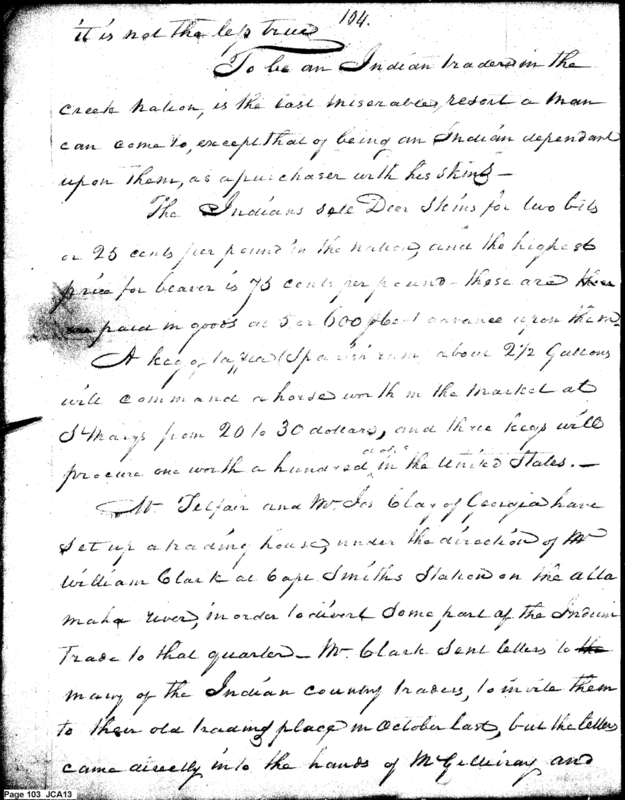 104.
it is not the less true
To be an Indian trader in the
creek nation, is the last miserable, resort a man
can come to, except that of being an Indian dependant
upon them, as a purchaser with his skins –
The Indians sele Deer Skins for two bits
or 25 cents per pound in the nation, and the highest
price for beaver is 75 cents per pound – these are
paid in goods at 5 or 600 advance upon them
A keg of taffia (Spanish rum, about 2 1/2 Gallons
will command a horse worth in the market at
St Marys from 20 to 30 dollars, and three kegs will
procure one worth a hundred dolrs in the United States. –
Mr. Telfair and Mr Jos Clay of Georgia have
set up a trading house, under the direction of Mr
William Clark at Capt Smiths Station on the alta
maha river, in order to divert some part of the Indian
Trade to that quarter – Mr. Clark sent letters to the
many of the Indian country traders, to invite them
to their old trading place in October last, but the letters
came directly into the hands of McGillivray and
Page 103 JCA13